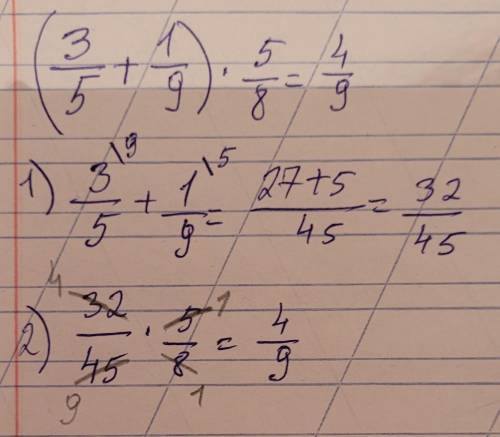 (3/5 + 1/9) · 5/8 = 4/9
1) 3\9/5 + 1\5/9 = 27+5/45 = 32/45
2) 4 32/45 9 · 5 1/8 1 = 4/9